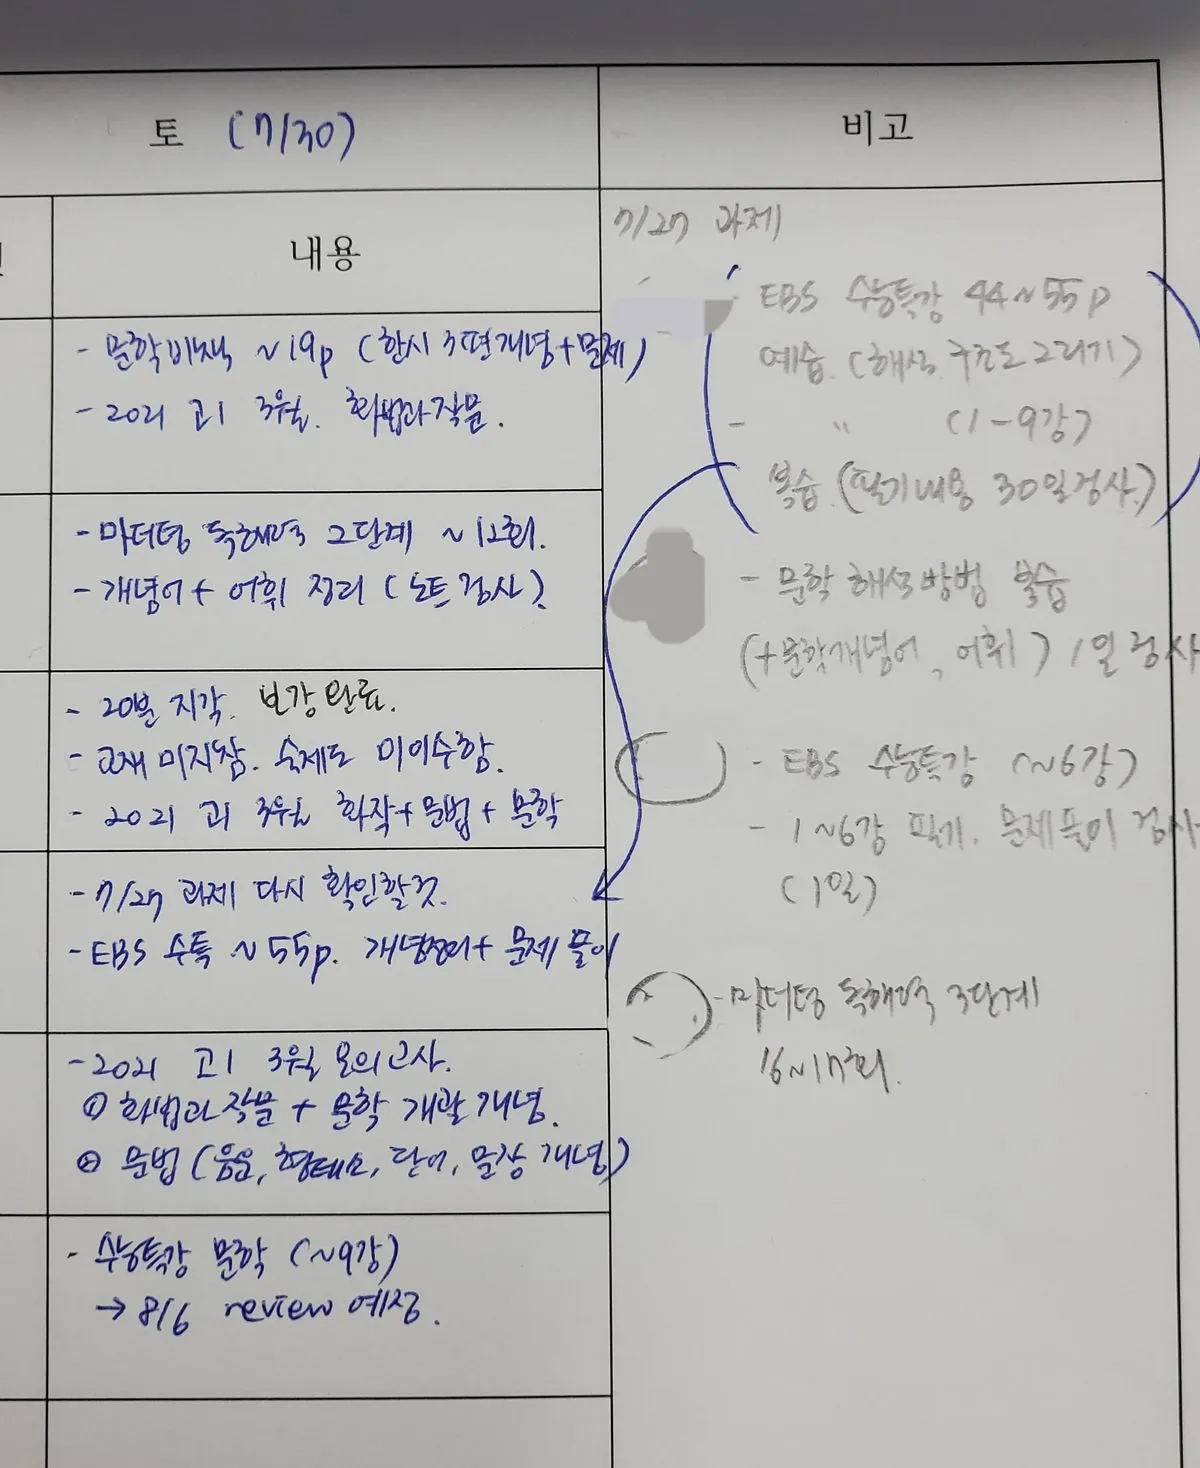 토 (7/30)
내용
- 문학비책 ~19p (한시 3편개념+문제)
- 2021 고1 3월. 화법과작문.
- 마더텅 독해력 2단계 ~12회.
- 개념어+ 어휘 정리 (노트검사).
- 20분 지각. 보강완료.
- 교재 미지참. 숙제도 미이수함.
- 2021 고1 3월 화작+문법+문학
- 7/27 과제 다시 확인할것.
- EBS 수특 ~55p. 개념정리+ 문제풀이
- 2021 고1 3월 모의고사.
① 화법과작문 + 문학 개괄개념.
② 문법 (음운, 형태소, 단어, 문장 개념)
- 수능특강 문학 (~9강)
→ 8/6 review 예정.
비고
7/27 과제
EBS 수능특강 44~55p
예습. (해석. 구조도그리기)
- " (1-9강)
복습. (필기내용 30일검사.)
- 문학 해석방법 복습
(+문학개념어, 어휘) 1일 검사
- EBS 수능특강 (~6강)
- 1~6강 필기. 문제풀이 검사
(1일)
- 마더텅 독해력 3단계
16~17회.